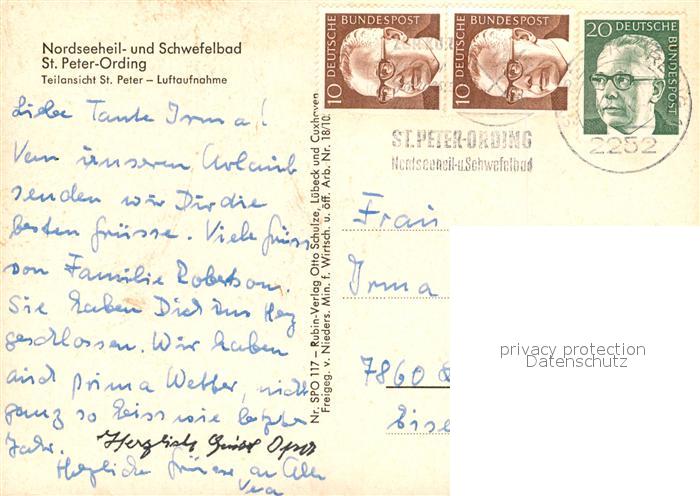 Nordseeheil- und Schwefelbad
St. Peter-Ording
Teilansicht St. Peter – Luftaufnahme
Liebe Tante Irma!
Von unseren Urlaub
senden wir Dir die
besten Grüsse. Viele Grüsse
von Familie Robertson.
Sie haben Dich ins Herz
geschlossen. Wir haben
auch prima Wetter, nicht
ganz so heiss wie letztes
Jahr.
Herzlich grüßt Opa
Herzliche Grüsse an Alle
Vera
Nr. SPO 117 – Rubin-Verlag Otto Schulze, Lübeck und Cuxhaven
Freigeg. v. Nieders. Min. f. Wirtsch. u. öff. Arb. Nr. 18/10
10 DEUTSCHE BUNDESPOST
10 DEUTSCHE BUNDESPOST
20 DEUTSCHE BUNDESPOST
ST. PETER-ORDING
Nordseeheil-u.Schwefelbad
2252
Frau
Irma
7860
privacy protection
Datenschutz